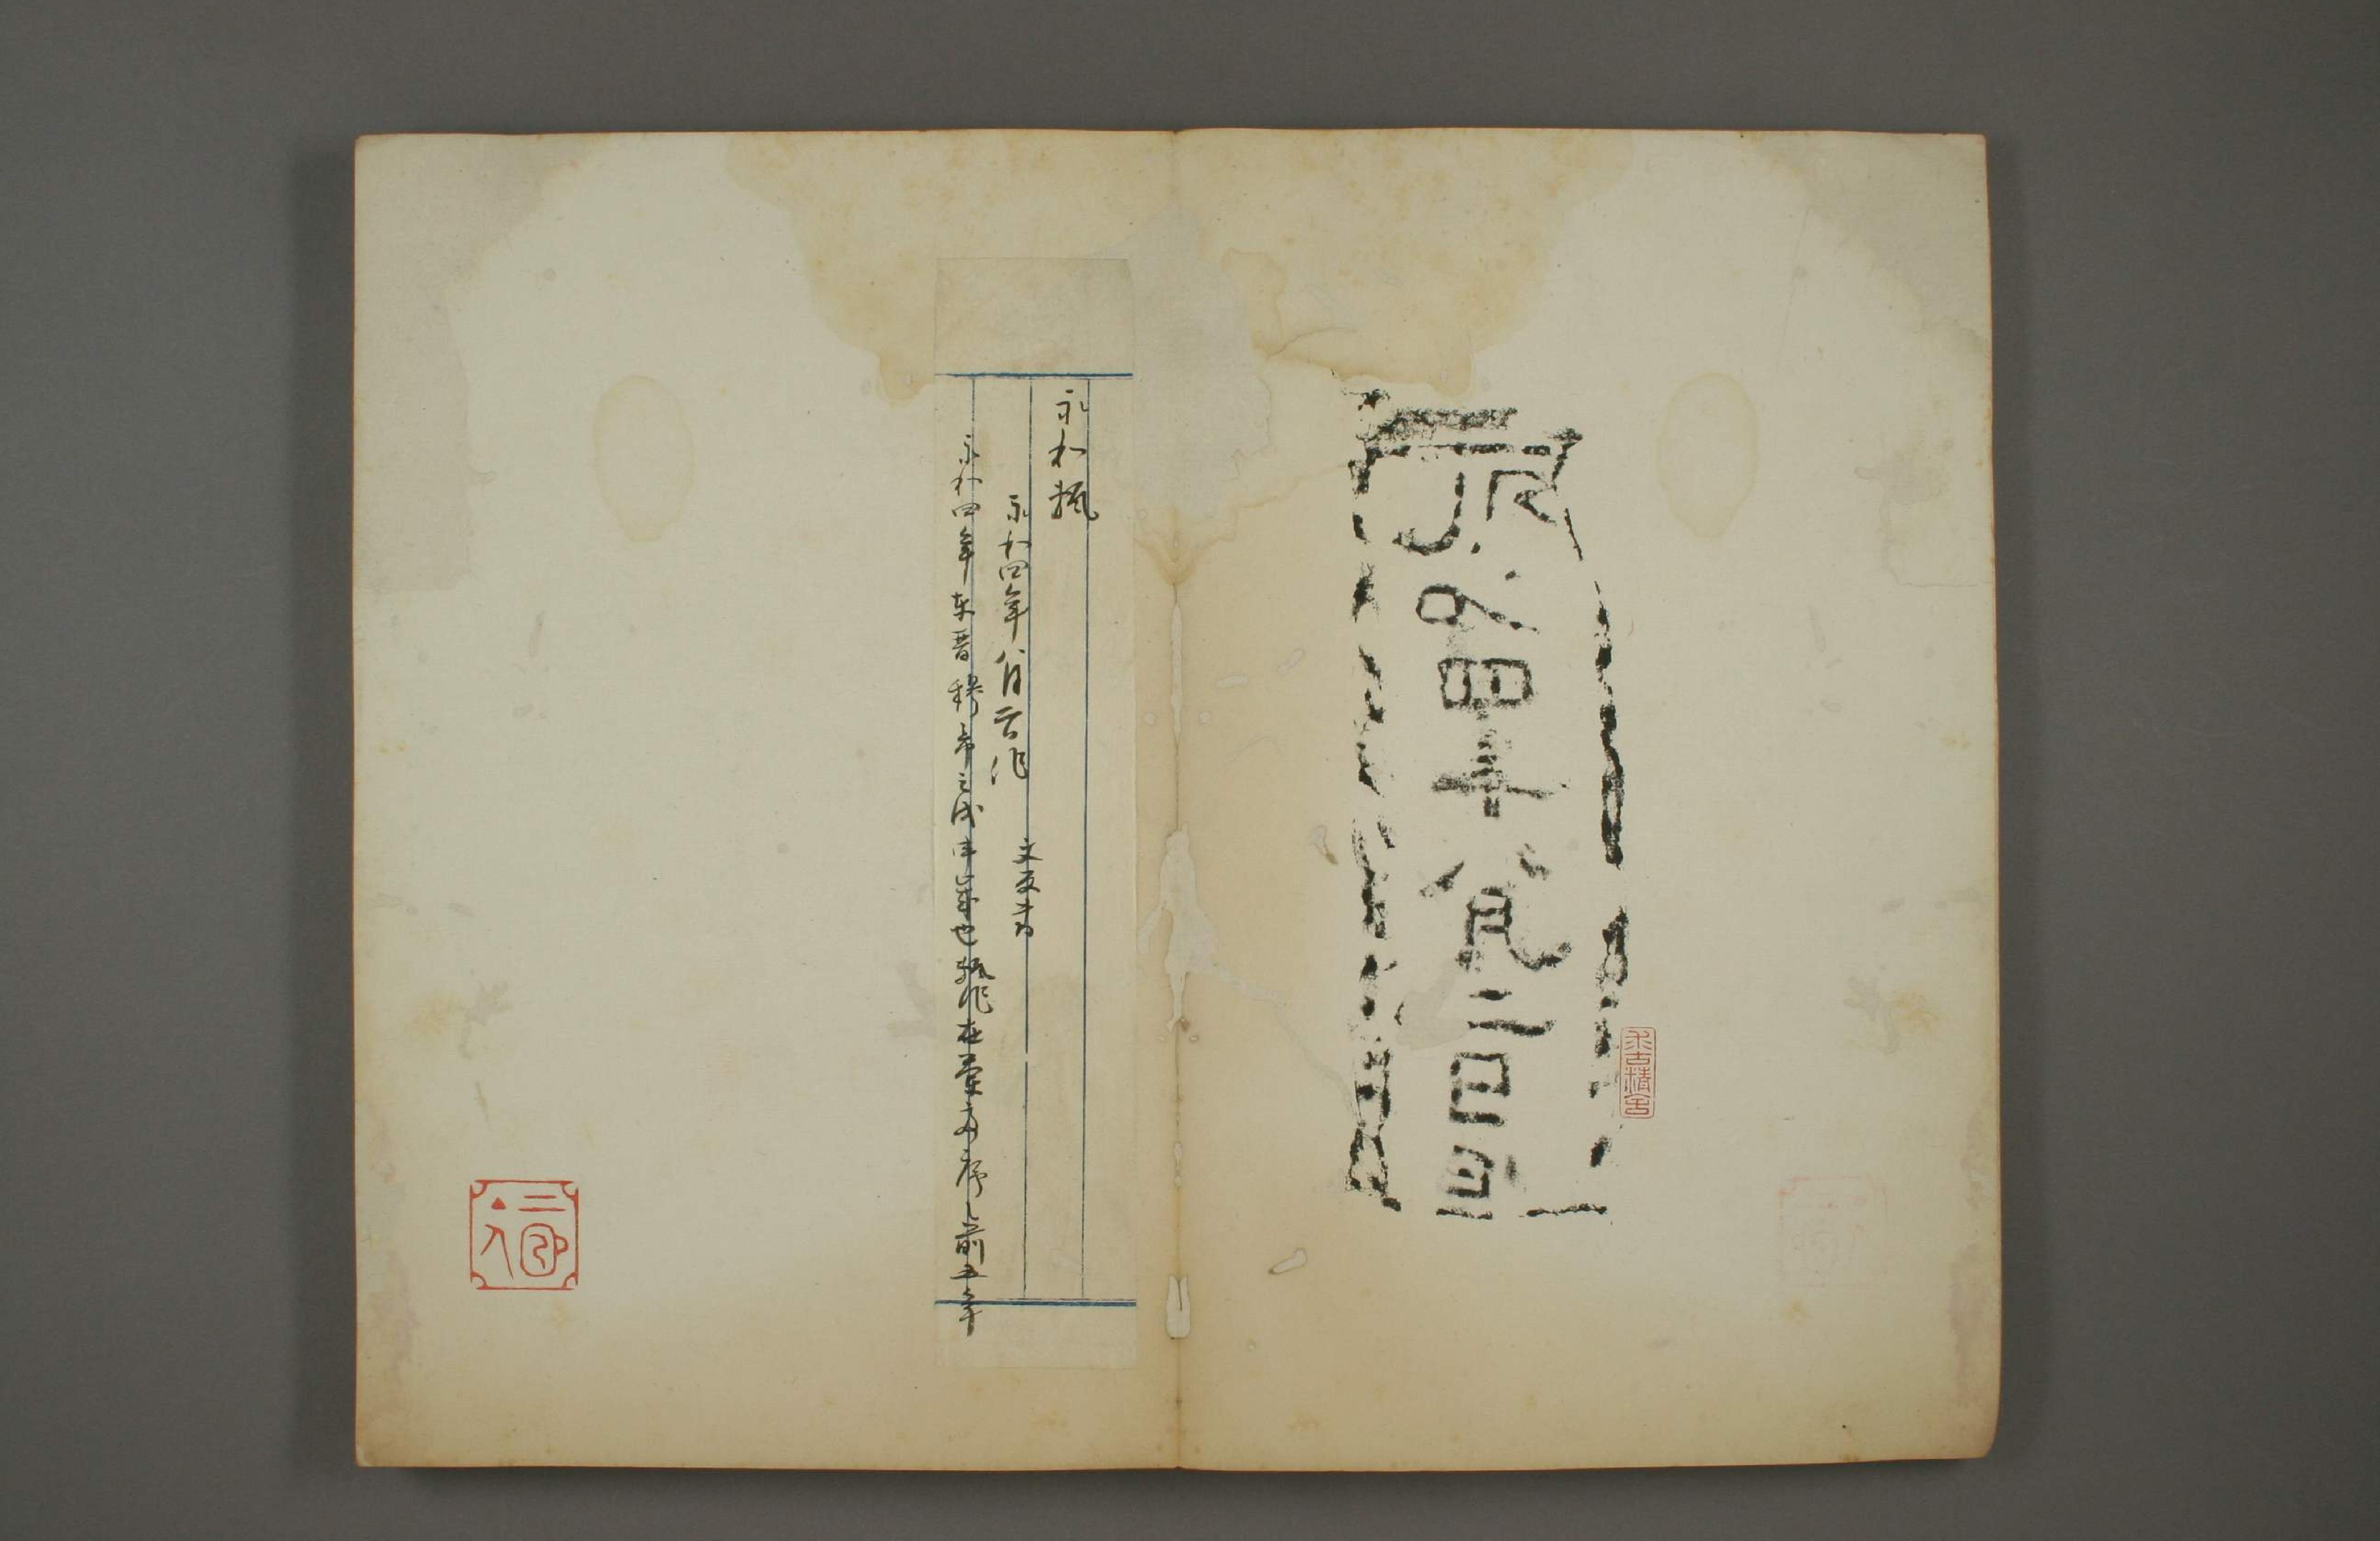 永和四年八月二日
求古精舍
永和甎
永和四年八月二日作 文反書
永和四年東晉穆帝之戊申歲也甎作在蘭亭序之前五年